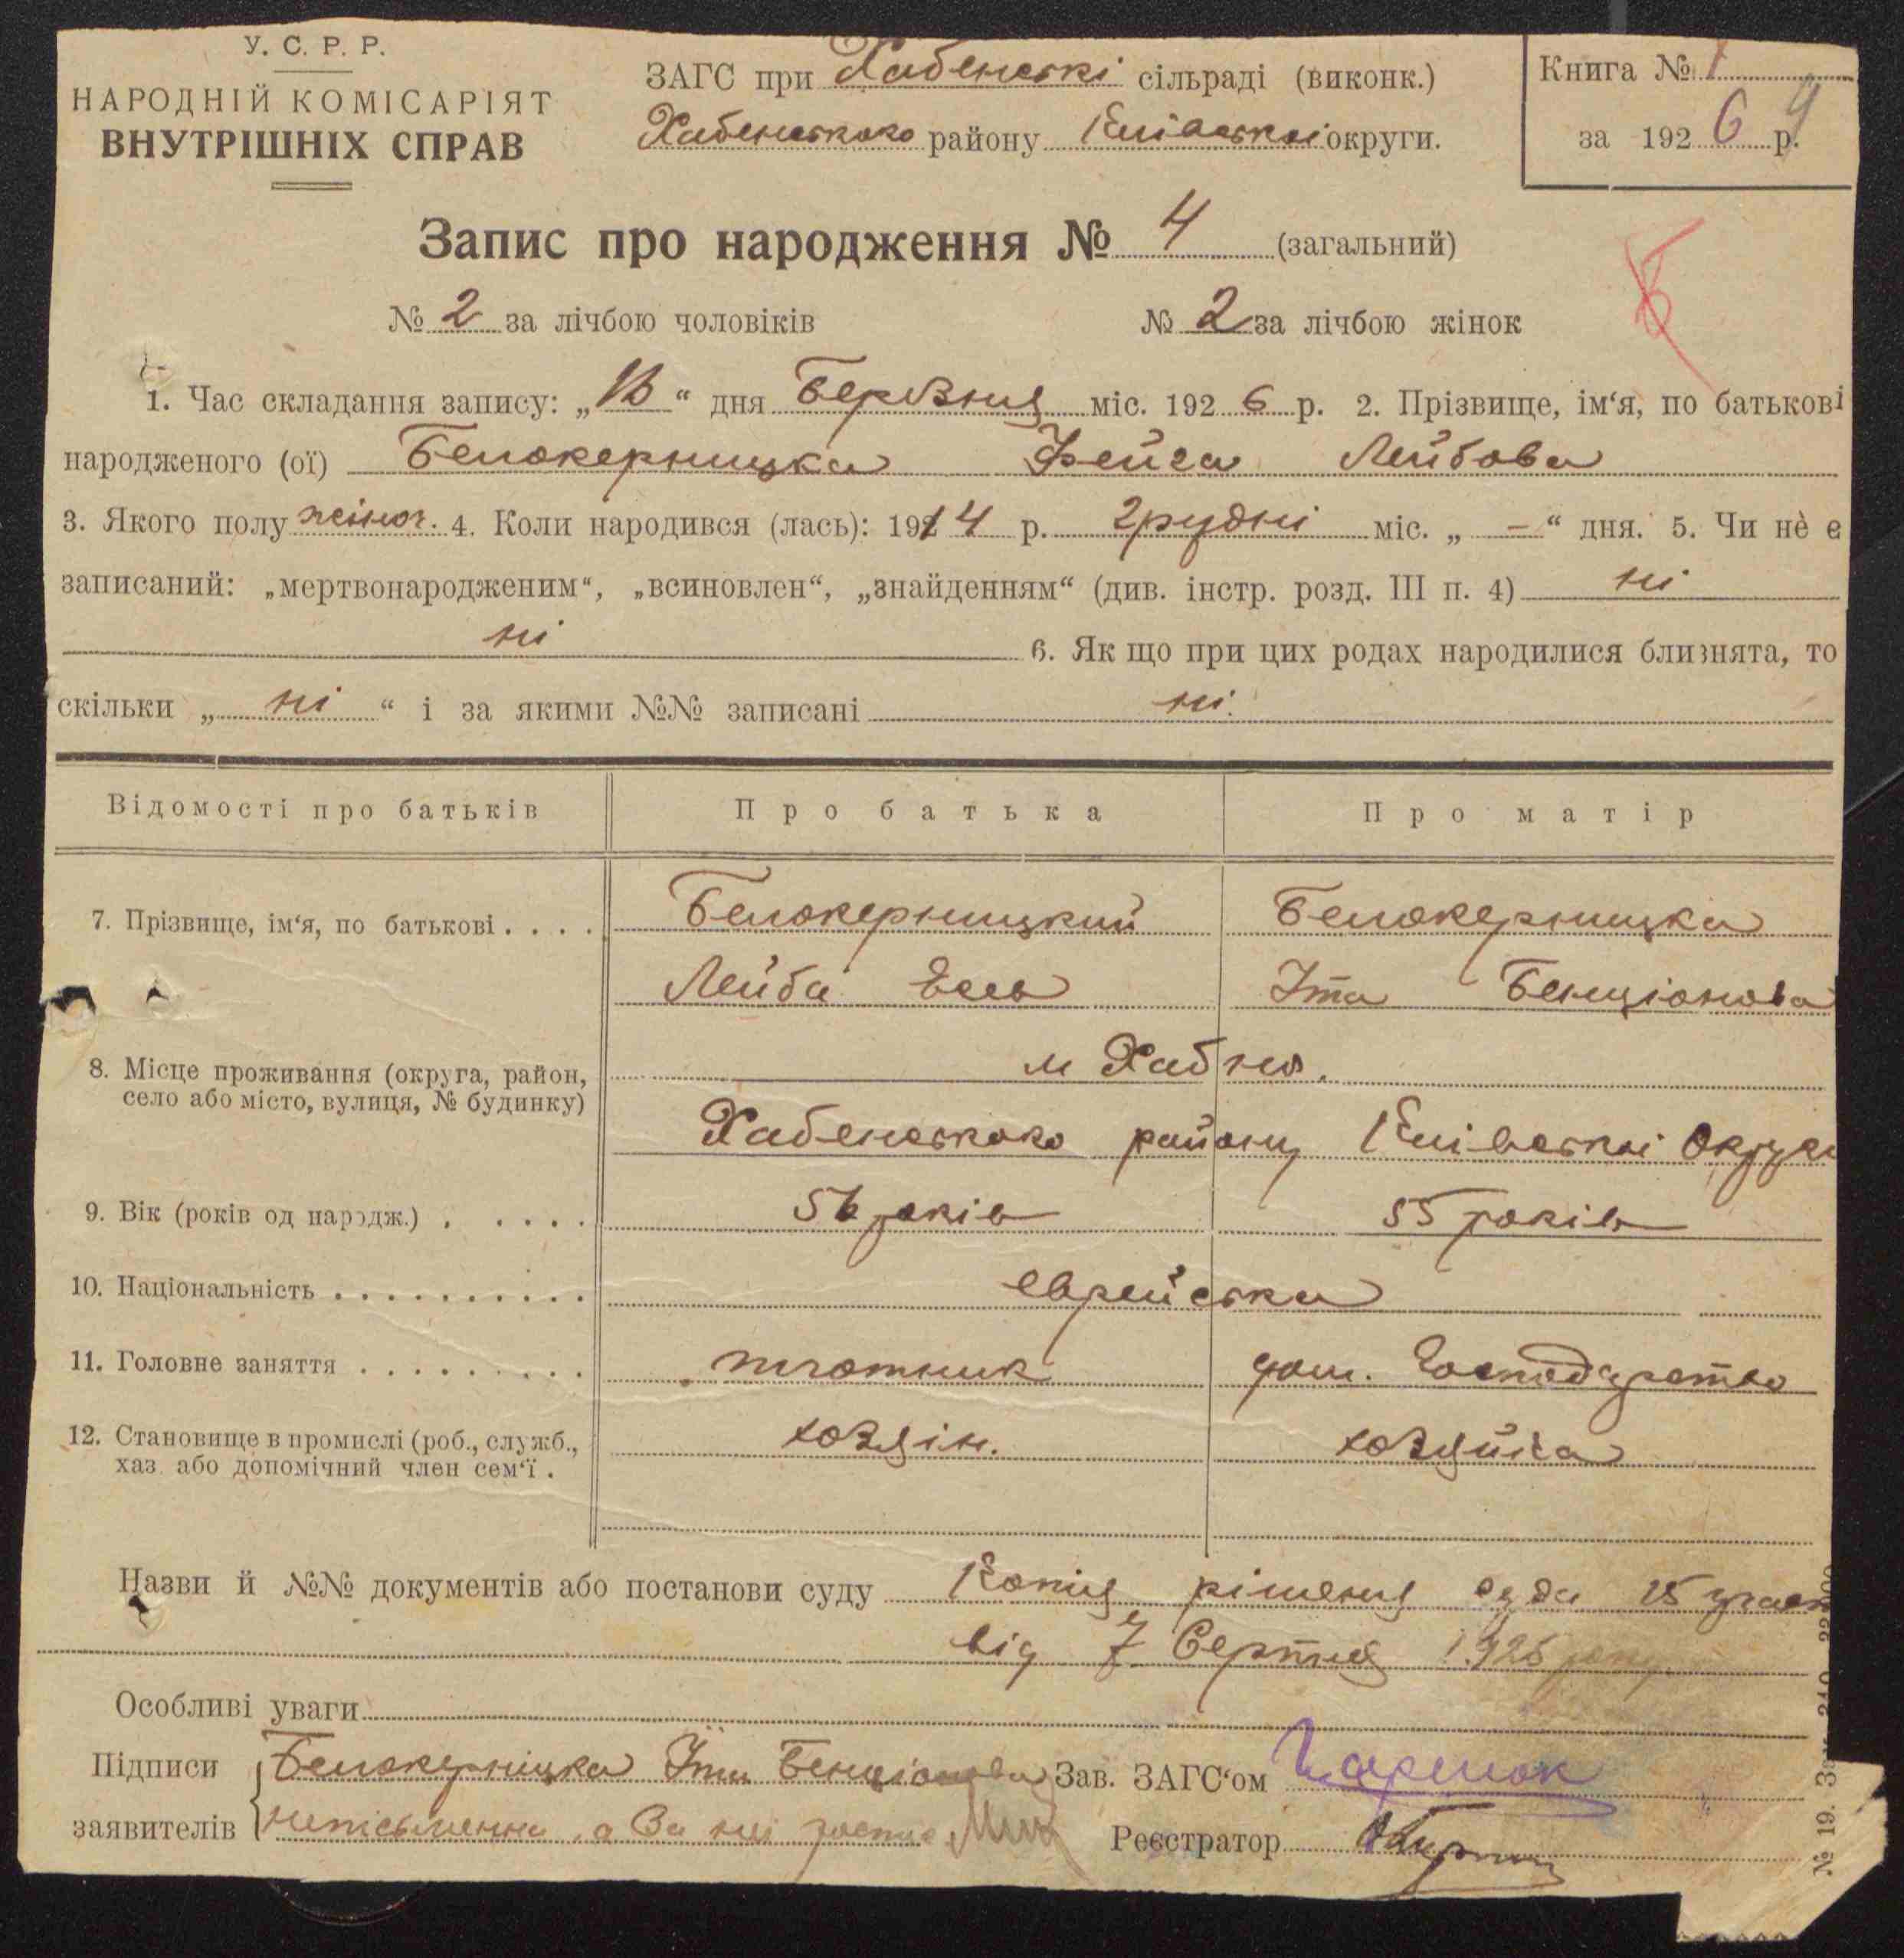 У. С. Р. Р.
НАРОДНІЙ КОМІСАРІЯТ
ВНУТРІШНІХ СПРАВ
ЗАГС при Хабенскі сільраді (виконк.)
Хабенського району Київської округи.
Книга № 1
за 1926 р. 9
Запис про народження № 4 (загальний)
№ 2 за лічбою чоловіків № 2 за лічбою жінок
1. Час складання запису: „ “ дня Березня міс. 1926 р. 2. Прізвище, ім‘я, по батькові
народженого (ої) Белокерницка Фейга Лейбова
3. Якого полу жіноч. 4. Коли народився (лась): 1914 р. Грудні міс. „ — “ дня. 5. Чи не є
записаний: „мертвонародженим“, „всиновлен“, „знайденням“ (див. інстр. розд. III п. 4) ні
ні 6. Як що при цих родах народилися близнята, то
скільки „ ні “ і за якими №№ записані ні.
Відомості про батьків Про батька Про матір
7. Прізвище, ім‘я, по батькові . . . . Белокерницкий Белокерницка
Лейба Іта Бенціонова
8. Місце проживання (округа, район,
село або місто, вулиця, № будинку)
м Хабно.
Хабенского району Київскоі Округи
9. Вік (років од народж.) . . . . . 56 років 55 років
10. Національність . . . . . . . . . . еврейська
11. Головне заняття . . . . . . . . . плотник дом. Господарство
12. Становище в промислі (роб., служб.,
хаз. або допомічний член сем‘ї .
хозяін. хозяйка
Назви й №№ документів або постанови суду Копія рішення суда 15 участ
від 7 Серпня 1925 року.
Особливі уваги
Підписи Белокерніцка Іта Бенціонова Зав. ЗАГС‘ом
заявителів неписьменна, а За неі роспис. Реєстратор
№ 19. 3